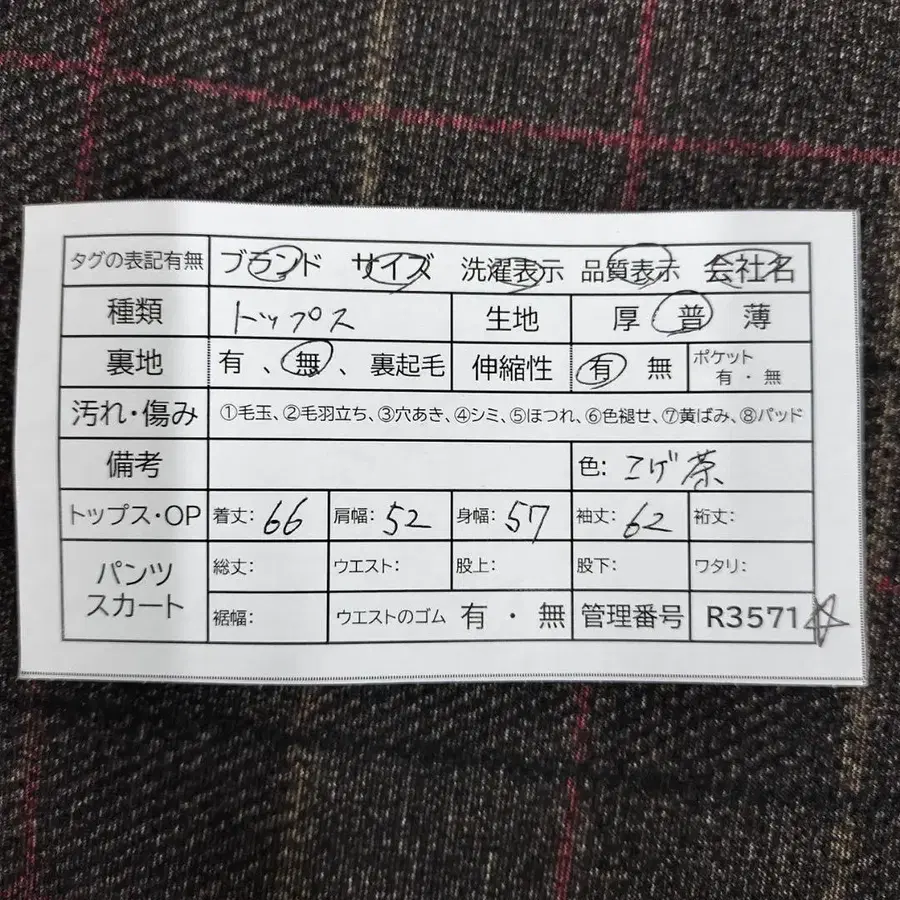 タグの表記有無 ブランド サイズ 洗濯表示 品質表示 会社名
種類 トップス 生地 厚 普 薄
裏地 有、無、裏起毛 伸縮性 有 無 ポケット 有・無
汚れ・傷み ①毛玉、②毛羽立ち、③穴あき、④シミ、⑤ほつれ、⑥色褪せ、⑦黄ばみ、⑧パッド
備考 色: こげ茶
トップス・OP 着丈: 66 肩幅: 52 身幅: 57 袖丈: 62 裄丈:
パンツ スカート 総丈: ウエスト: 股上: 股下: ワタリ:
裾幅: ウエストのゴム 有・無 管理番号 R3571☆